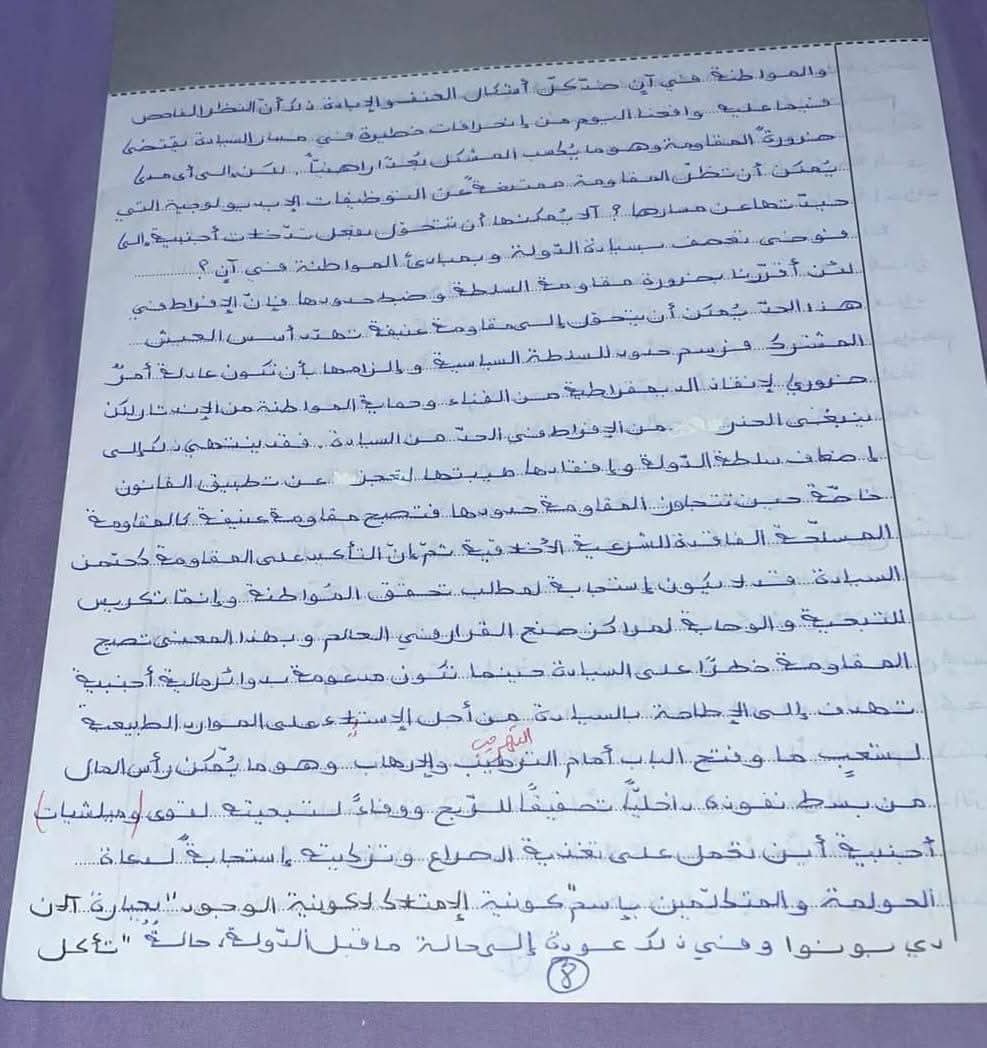 والمواطنة في آن ضدّ كلّ أشكال العنف والإبادة ذلك أن النظر الفاحص
فيما عليه واقعنا اليوم من إنحرافات خطيرة في مسار السيادة يقتضي
ضرورةً المقاومة وهو ما يُكسب المشكل بُعدًا راهنيًّا. لكن إلى أي مدى
يُمكن أن تظلّ المقاومة ممتنعة عن التوظيفات الإيديولوجية التي
حيدّتها عن مسارها؟ ألا يُمكنها أن تتحوّل بفعل تدّخلات أجنبية إلى
فوضى تعصف بسيادة الدّولة وبمبادئ المواطنة في آن؟
لئن أقررنا بضرورة مقاومة السلطة وضبط حدودها فإنّ الإفراط في
هذا الحدّ يُمكن أن يتحوّل إلى مقاومة عنيفة تهدّد أسس العيش
المشترك فرسم حدود للسلطة السياسية وإلزامها بأن تكون عادلة أمرٌ
ضروري لإنقاذ الديمقراطية من الفناء وحماية المواطنة من الإندثار لكن
ينبغي الحذر من الإفراط في الحدّ من السيادة. فقد ينتهي ذلك إلى
إضعاف سلطة الدّولة وإفقادها هيبتها لتعجز عن تطبيق القانون
خاصّة حين تتجاوز المقاومة حدودها فتصبح مقاومة عنيفة كالمقاومة
المسلّحة الفاقدة للشرعية الأخلاقية ثمّ إنّ التأكيد على المقاومة كحدّ من
السيادة قد لا يكون إستجابة لمطلب تحقق المُواطنة وإنمّا تكريس
للتبعية والوصاية لمراكز صنع القرار في العالم وبهذا المعنى تصبح
المقاومة خطرًا على السيادة حينما تكون مدعومة بدوائر مالية أجنبية
تهدف إلى الإطاحة بالسيادة من أجل الإستيلاء على الموارد الطبيعية
لشعبٍ ما وفتح الباب أمام التهريب والإرهاب وهو ما يُمكّن رأس المال
من بسط نفوذه داخليًّا تحقيقًا للرّبح ووفاءً لتبعيته لقوى (وميلشيات)
أجنبية أين تعمل على تغذية الصراع وتزكيته إستجابةً لدعاة
العولمة والمتكلّمين بإسم "كونية الإمتلاك لا كونية الوجود" بعبارة آلان
دي بونوا وفي ذلك عودة إلى حالة ما قبل الدّولة، حالةُ "تأكل
8